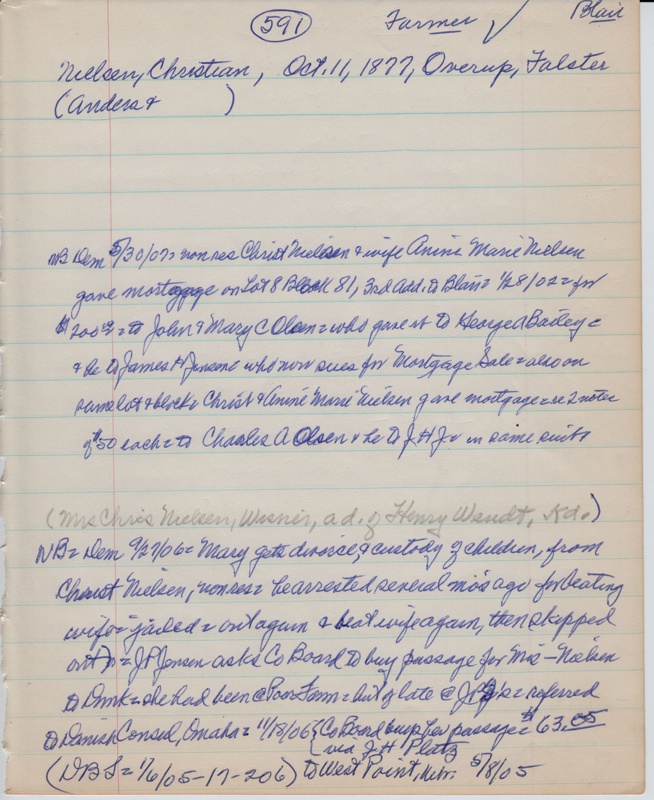 591 Farmer ✓ Blair
Nielsen, Christian, Oct. 11, 1877, Overup, Falster
(Anders & )
NB Dem 5/30/07 = nonres Christ Nielsen & wife Anine Marie Nielsen
gave mortgage on Lot 8 Block 81, 3rd Add. to Blair = 1/28/02 = for
$200 = to John & Mary C Olsen = who gave it to George A Bailey =
& he to James H Jensen = who now sues for Mortgage Sale = also on
same lot & block = Christ & Anine Marie Nielsen gave mortgage = re 2 notes
of $50 each = to Charles A Olsen & he to J H J = in same suit
(Mrs Chris Nielsen, Wisner, a d. of Henry Wendt, Kd.)
NB = Dem 9/27/06 = Mary gets divorce, & custody of children, from
Christ Nielsen, nonres = he arrested several mos ago for beating
wife = jailed = out again & beat wife again, then skipped
out = J H Jensen asks Co Board to buy passage for Mrs Nielsen
to Dmk = she had been @ Poor Farm = but of late @ = referred
to Danish Consul, Omaha = 11/15/06 { Co Board buys her passage = $63.05
{ via J. H Platz
(DBS = 1/6/05-17-206) to West Point, Nebr. 5/8/05